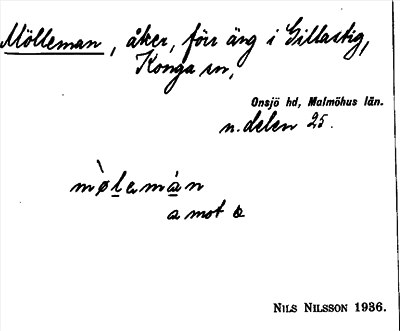 Mölleman, åker, förr äng i Gillastig,
Konga sn,
Onsjö hd, Malmöhus län.
n. delen 25.
mø̀lamán
a mot ɑ
NILS NILSSON 1936.